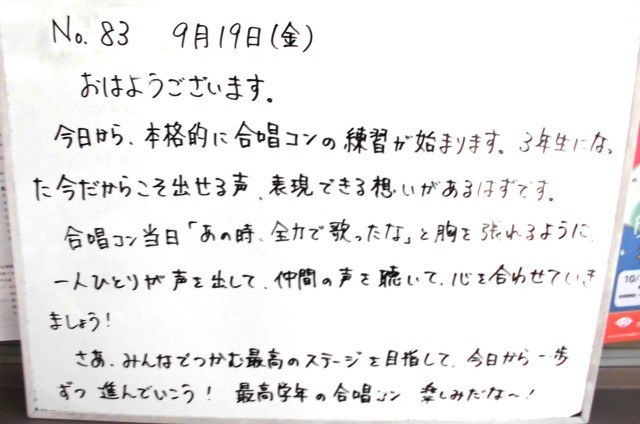 No. 83 9月19日(金)
おはようございます。
今日から、本格的に合唱コンの練習が始まります。3年生になっ
た今だからこそ出せる声、表現できる想いがあるはずです。
合唱コン当日「あの時、全力で歌ったな」と胸を張れるように、
一人ひとりが声を出して、仲間の声を聴いて、心を合わせていき
ましょう!
さあ、みんなでつかむ最高のステージを目指して、今日から一歩
ずつ進んでいこう! 最高学年の合唱コン 楽しみだな〜!
10/